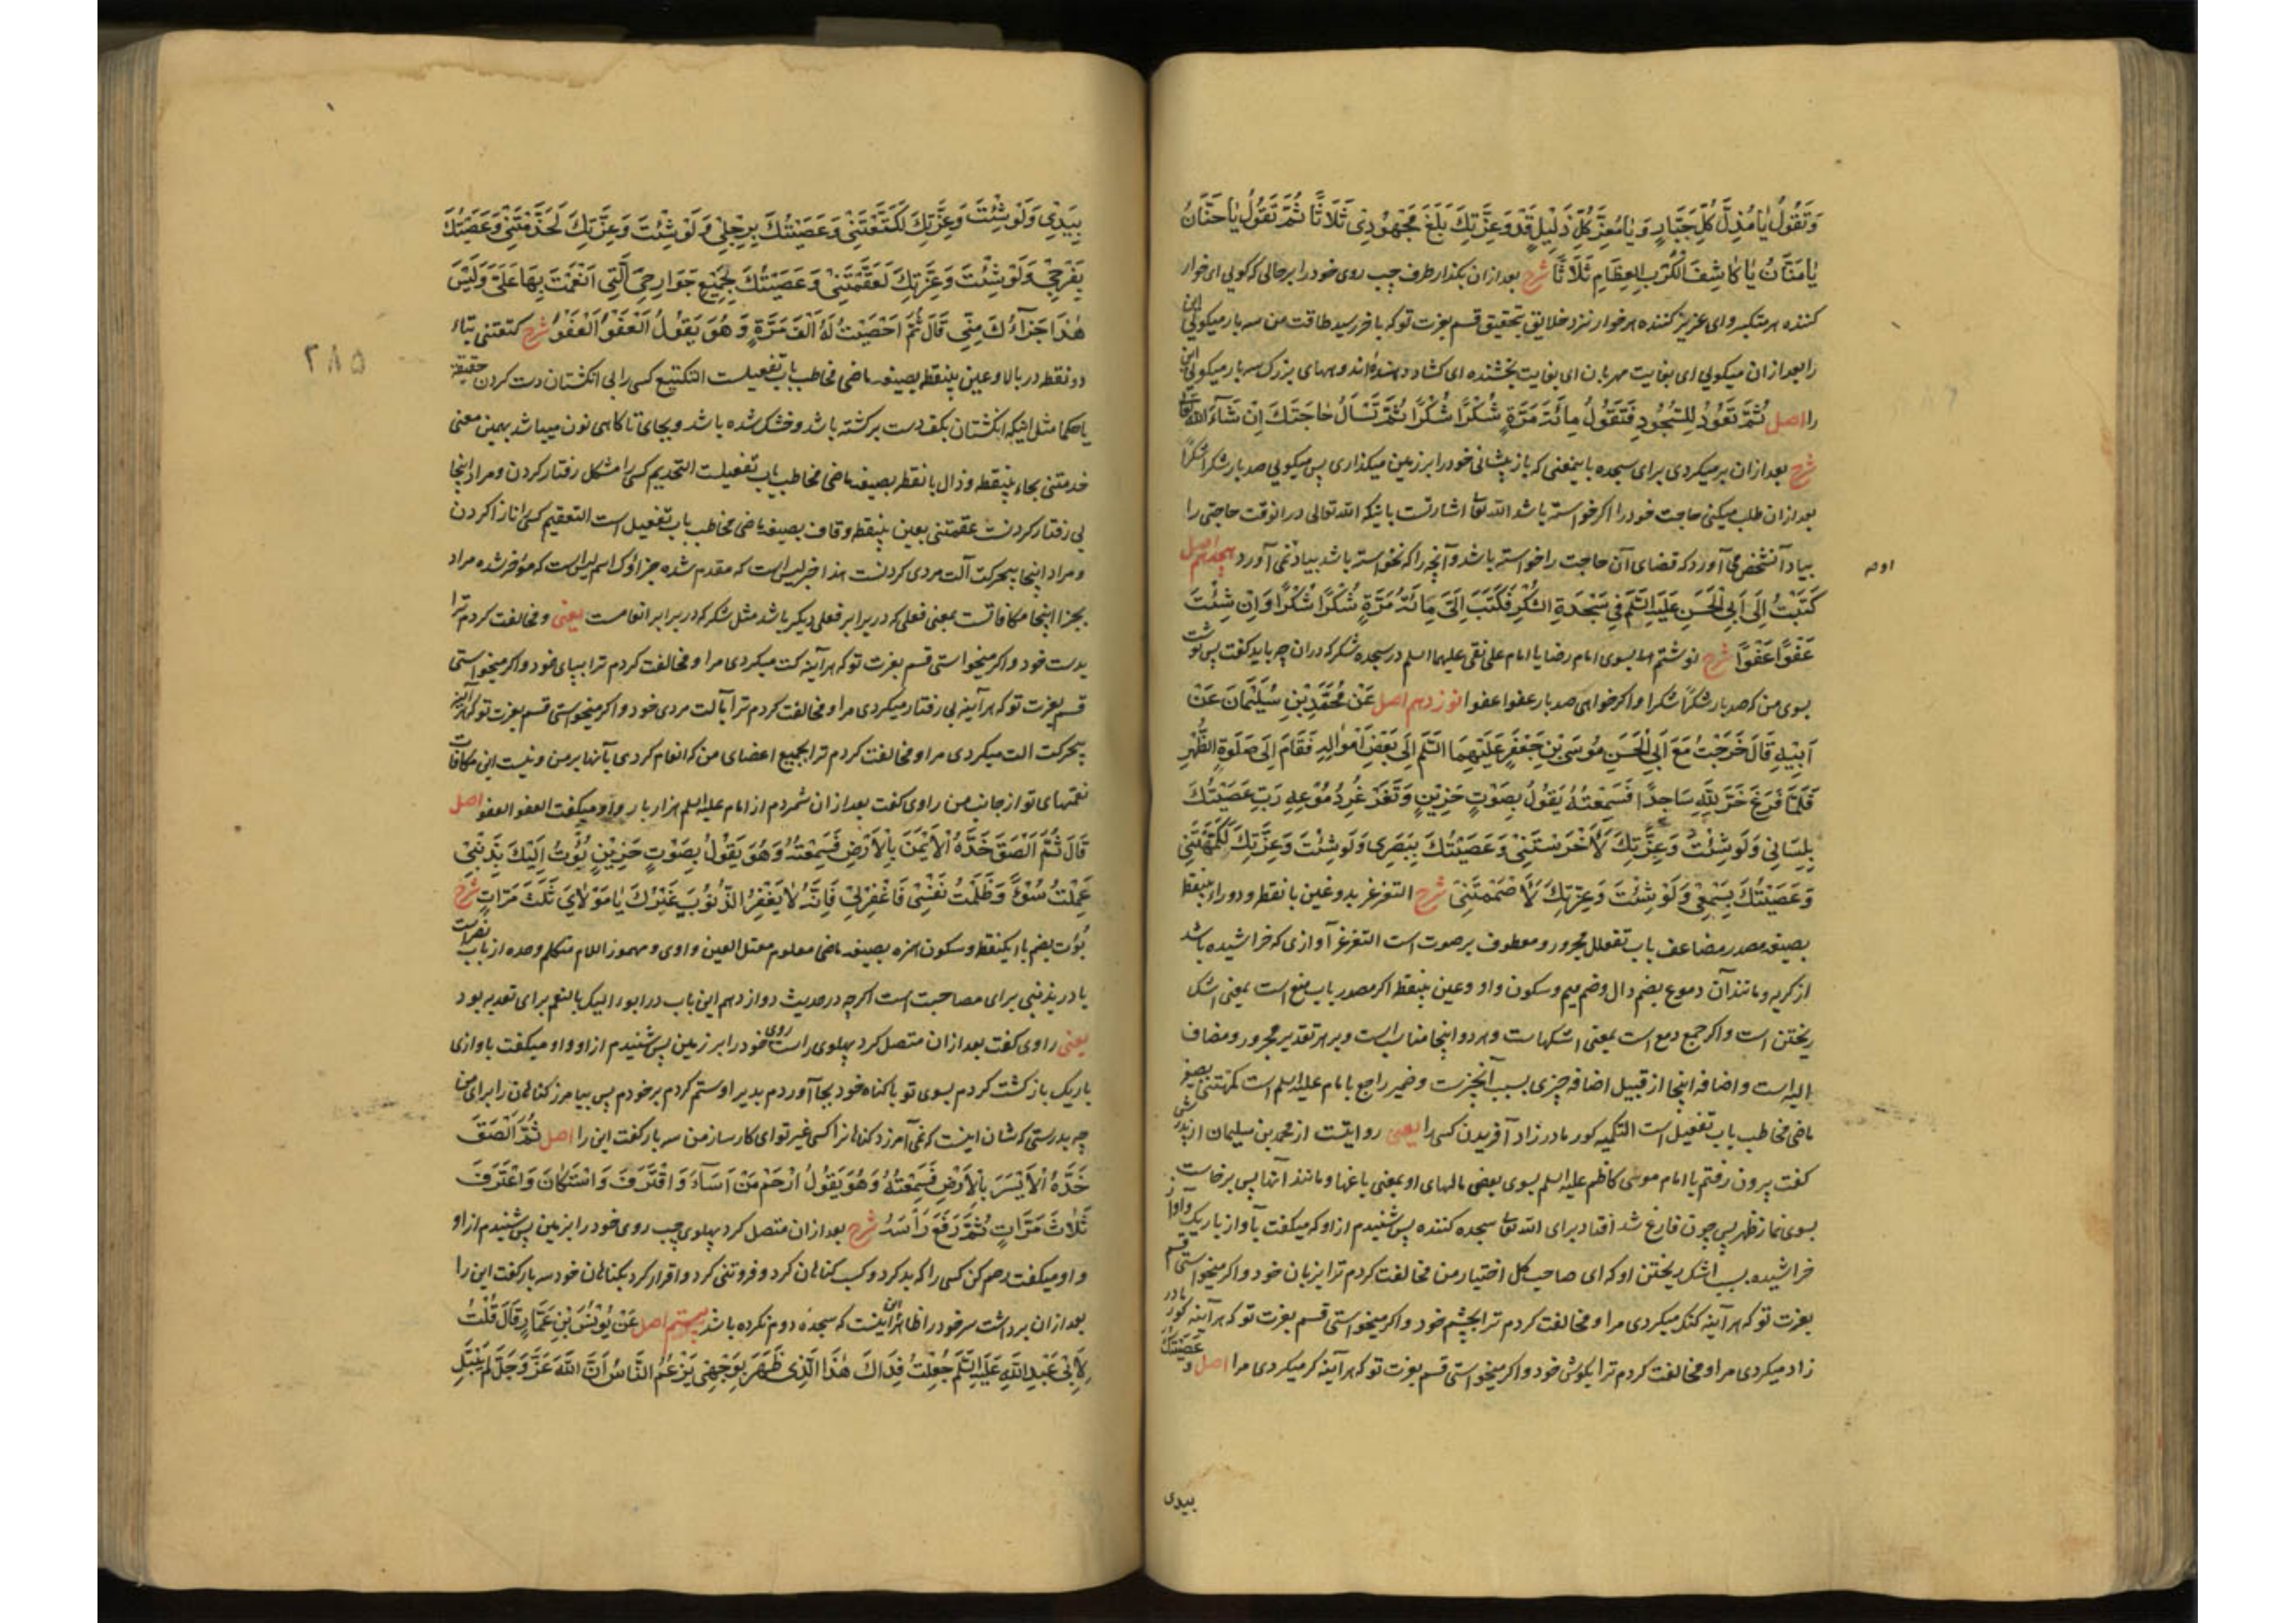 وَتَقُولُ يَا مُذِلَّ كُلِّ جَبَّارٍ وَيَا مُعِزَّ كُلِّ ذَلِيلٍ قَدْ وَعِزَّتِكَ بَلَغَ مَجْهُودِي ثَلَاثًا ثُمَّ تَقُولُ يَا حَنَّانُ
يَا مَنَّانُ يَا كَاشِفَ الْكُرَبِ الْعِظَامِ ثَلَاثًا شرح بعد ازان بکذار طرف چپ روی خود را بر حالی که کویی ای خوار
کننده هر متکبر و ای عزیز کننده هر خوار نزد خلایق بتحقیق قسم بعزت تو که باخر رسید طاقت من سه بار میکویی این
را بعد ازان میکویی ای بغایت مهربان ای بغایت بخشنده ای کشاد دهنده اندوههای بزرک سه بار میکویی این
را اصل ثُمَّ تَعُودُ لِلسُّجُودِ فَتَقُولُ مِائَةَ مَرَّةٍ شُكْرًا شُكْرًا ثُمَّ تَسْأَلُ حَاجَتَكَ اِنْ شَآءَ اللهُ تعا
شرح بعد ازان بر میکردی برای سجده باینمعنی که باز پیشانی خود را بر زمین میکذاری پس میکویی صد بار شکرا شکرًا
بعد ازان طلب میکنی حاجت خود را اکر خواسته باشد الله تعا اشارتست باینکه الله تعالی در انوقت حاجتی را
بیاد آنشخص می آورد که قضای آن حاجت را خواسته باشد و آنچه را که نخواسته باشد بیاد نمی آورد هجدهم اصل
كَتَبْتُ اِلَى اَبِي الْحَسَنِ عَلَيْهِ السَّلَم فِي سَجْدَةِ الشُّكْرِ فَكَتَبَ اِلَيَّ مِائَةَ مَرَّةٍ شُكْرًا شُكْرًا وَاِنْ شِئْتَ
عَفْوًا عَفْوًا شرح نوشتم بسوی امام رضا یا امام علی نقی علیهما السلم در سجده شکر که دران چه باید کفت پس نوشت
بسوی من که صد بار شکرًا شکرا و اکر خواهی صد بار عفوا عفوا نوزدهم اصل عَنْ مُحَمَّدِ بْنِ سُلَيْمَانَ عَنْ
اَبِيْهِ قَالَ خَرَجْتُ مَعَ اَبِي الْحَسَنِ مُوسَى بْنِ جَعْفَرٍ عَلَيْهِمَا السَّلَم اِلَى بَعْضِ اَمْوَالِهِ فَقَامَ اِلَى صَلَوةِ الظُّهْرِ
فَلَمَّا فَرَغَ خَرَّ لِلّهِ سَاجِدًا فَسَمِعْتُهُ يَقُولُ بِصَوْتٍ حَزِيْنٍ وَتَغَرْغُرِ دُمُوعِهِ رَبِّ عَصَيْتُكَ
بِلِسَانِي وَلَوْ شِئْتَ وَعِزَّتِكَ لَأَخْرَسْتَنِي وَعَصَيْتُكَ بِبَصَرِي وَلَوْ شِئْتَ وَعِزَّتِكَ لَكَمَّهْتَنِي
وَعَصَيْتُكَ بِسَمْعِي وَلَوْ شِئْتَ وَعِزَّتِكَ لَأَصْمَمْتَنِي شرح التغرغر بدو غین بانقطه و دو راء بینقطه
بصیغه مصدر مضاعف باب تفعلل مجرور و معطوف بر صوت است التغرغر آوازی که خراشیده باشد
از کریه و مانند آن دموع بضم دال و ضم میم و سکون واو و عین بینقطه اکر مصدر باب منع است بمعنی اشک
ریختن است و اکر جمع دمع است بمعنی اشکهاست و هر دو اینجا مناسبست و بر هر تقدیر مجرور و مضاف
الیه است و اضافه اینجا از قبیل اضافه چیزی بسبب آنچیزست و ضمیر راجع بامام علیه السلم است کمهتنی بصیغه
ماضی مخاطب باب تفعیل است التکمیه کور مادر زاد آفریدن کسی را یعنی روایتست از محمد بن سلیمان از پدرش
کفت بیرون رفتم با امام موسی کاظم علیه السلم بسوی بعضی مالهای او یعنی باغها و مانند آنها پس برخاست
بسوی نماز ظهر پس چون فارغ شد افتاد برای الله تعا سجده کننده پس شنیدم ازو که میکفت بآواز باریک و آواز
خراشیده بسبب اشک ریختن او که ای صاحب کل اختیار من مخالفت کردم ترا بزبان خود و اکر میخواستی قسم
بعزت تو که هرآینه کنک میکردی مرا و مخالفت کردم ترا بچشم خود و اکر میخواستی قسم بعزت تو که هرآینه کور مادر
زاد میکردی مرا و مخالفت کردم ترا بکوش خود و اکر میخواستی قسم بعزت تو که هرآینه کر میکردی مرا اصل و عَصَيْتُكَ
بیدی
بِيَدِي وَلَوْ شِئْتَ وَعِزَّتِكَ لَكَنَّعْتَنِي وَعَصَيْتُكَ بِرِجْلِي وَلَوْ شِئْتَ وَعِزَّتِكَ لَجَذَّمْتَنِي وَعَصَيْتُكَ
بِفَرْجِي وَلَوْ شِئْتَ وَعِزَّتِكَ لَعَقَّمْتَنِي وَعَصَيْتُكَ بِجَمِيْعِ جَوَارِحِيَ الَّتِي اَنْعَمْتَ بِهَا عَلَيَّ وَلَيْسَ
هٰذَا جَزَآءُكَ مِنِّي قَالَ ثُمَّ اَحْصَيْتُ لَهُ اَلْفَ مَرَّةٍ وَهُوَ يَقُوْلُ الْعَفْوَ الْعَفْوَ شرح کتعتنی بتاء
دو نقطه در بالا و عین بینقطه بصیغه ماضی مخاطب باب تفعیلست التکتیع کسی را بی انکشتان دست کردن حقیقة
یا حکما مثل اینکه انکشتان بکف دست برکشته باشد و خشک شده باشد و بجای تا کاهی نون میباشد بهمین معنی
خدمتنی بحاء بینقطه و ذال بانقطه بصیغه ماضی مخاطب باب تفعیلست التحذیم کسی را مشکل رفتار کردن و مراد اینجا
بی رفتار کردنست عقمتنی بعین بینقطه و قاف بصیغه ماضی مخاطب باب تفعیل است التعقیم کسی را نازا کردن
و مراد اینجا بیحرکت آلت مردی کردنست هذا خبر لیس است که مقدم شده جزاؤک اسم لیس است که مؤخر شده مراد
بجزا اینجا مکافاتست بمعنی فعلی که در برابر فعلی دیکر باشد مثل شکر که در برابر انعامست یعنی و مخالفت کردم ترا
بدست خود و اکر میخواستی قسم بعزت تو که هرآینه کت میکردی مرا و مخالفت کردم ترا بپای خود و اکر میخواستی
قسم بعزت تو که هرآینه بی رفتار میکردی مرا و مخالفت کردم ترا بآلت مردی خود و اکر میخواستی قسم بعزت تو که هرآینه
بیحرکت الت میکردی مرا و مخالفت کردم ترا بجمیع اعضای من که انعام کردی بآنها بر من و نیست این مکافات
نعمتهای تو از جانب من راوی کفت بعد ازان شمردم از امام علیه السلم هزار بار و او میکفت العفو العفو اصل
قَالَ ثُمَّ اَلْصَقَ خَدَّهُ الْاَيْمَنَ بِالْاَرْضِ فَسَمِعْتُهُ وَهُوَ يَقُوْلُ بِصَوْتٍ حَزِيْنٍ بُؤْتُ اِلَيْكَ بِذَنْبِي
عَمِلْتُ سُوْءً وَظَلَمْتُ نَفْسِي فَاغْفِرْلِي فَاِنَّهُ لَا يَغْفِرُ الذُّنُوْبَ غَيْرُكَ يَا مَوْلَايَ ثَلَثَ مَرَّاتٍ شرح
بُؤت بضم باء یکنقطه و سکون همزه بصیغه ماضی معلوم معتل العین واوی و مهموز اللام متکلم وحده از باب نصراست
با در بذنبی برای مصاحبت است اکرچه در حدیث دوازدهم این باب در ابوء الیک بالنعم برای تعدیه بود
یعنی راوی کفت بعد ازان متصل کرد پهلوی راست روی خود را بر زمین پس شنیدم ازو و او میکفت باوازی
باریک باز کشت کردم بسوی تو با کناه خود بجا آوردم بدیرا و ستم کردم بر خودم پس بیامرز کناهان را برای من
چه بدرستی که شان اینست که نمی آمرزد کناهانرا کسی غیر تو ای کارساز من سه بار کفت این را اصل ثُمَّ اَلْصَقَ
خَدَّهُ الْاَيْسَرَ بِالْاَرْضِ فَسَمِعْتُهُ وَهُوَ يَقُوْلُ ارْحَمْ مَنْ اَسَآءَ وَاقْتَرَفَ وَاسْتَكَانَ وَاعْتَرَفَ
ثَلَاثَ مَرَّاتٍ ثُمَّ رَفَعَ رَأْسَهُ شرح بعد ازان متصل کرد پهلوی چپ روی خود را بزمین پس شنیدم ازو
و او میکفت رحم کن کسی را که بد کرد و کسب کناهان کرد و فروتنی کرد و اقرار کرد بکناهان خود سه بار کفت این را
بعد ازان برداشت سر خود را ظاهر این اینست که سجده دوم نکرده باشد بیستم اصل عَنْ يُوْنُسَ بْنِ عَمَّارٍ قَالَ قُلْتُ
لِاَبِي عَبْدِ اللّهِ عَلَيْهِ السَّلَم جُعِلْتُ فِدَاكَ هٰذَا الَّذِي ظَهَرَ بِوَجْهِي يَزْعُمُ النَّاسُ اَنَّ اللهَ عَزَّ وَجَلَّ لَمْ يَبْتَلِ
۲۸۵